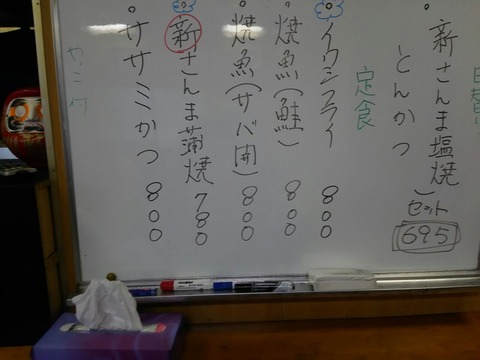 日替り
・新さんま塩焼
とんかつ
セット
695
定食
イワシフライ 800
・焼魚(鮭) 800
・焼魚(サバ開) 800
新さんま蒲焼 780
・ササミかつ 800